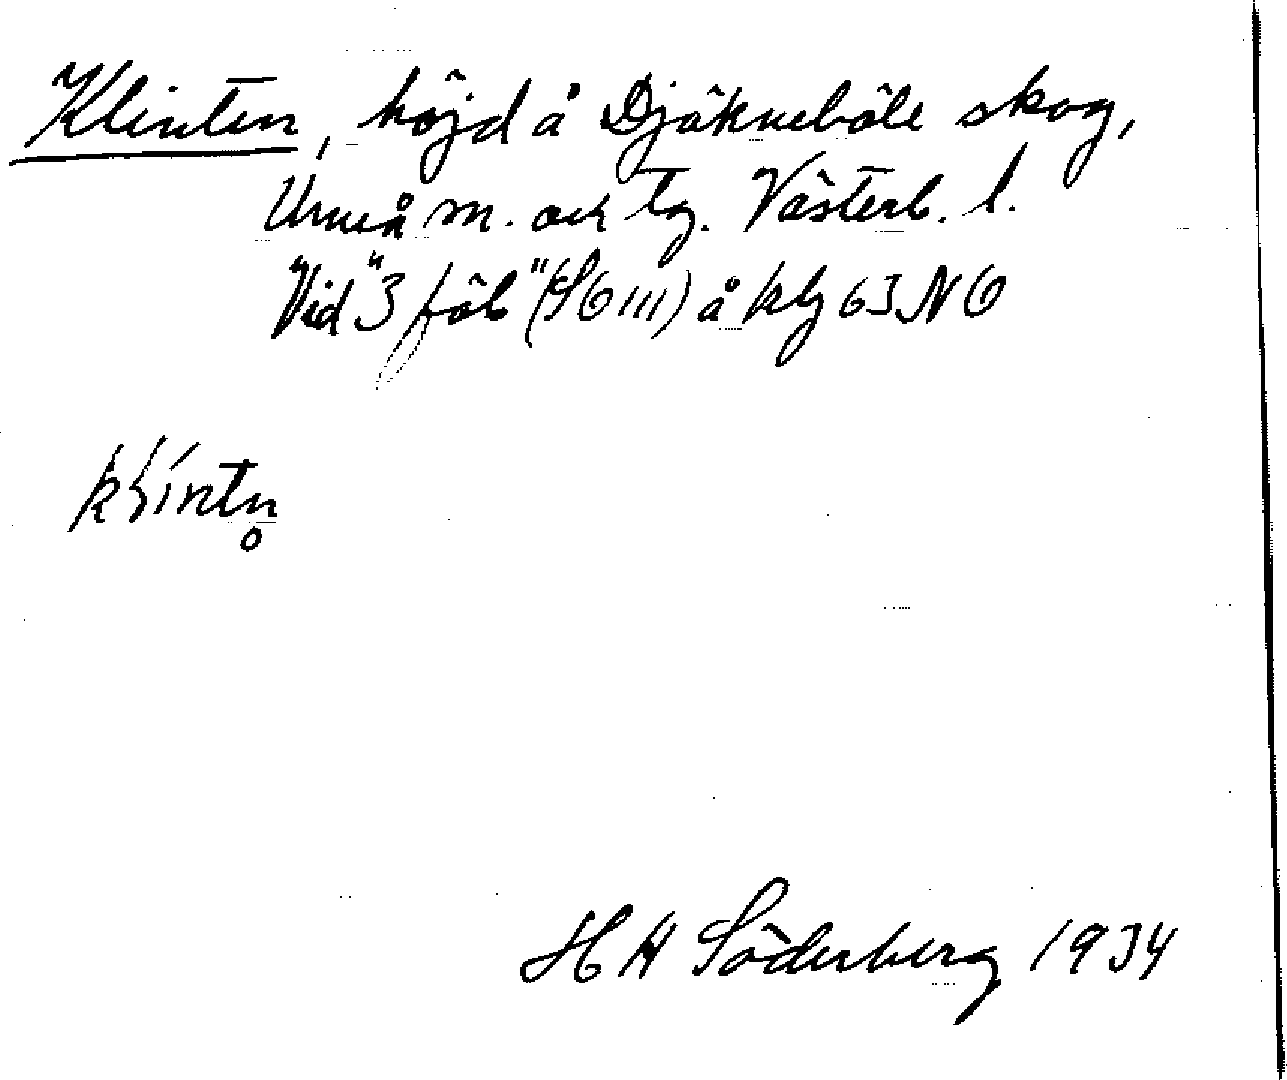 Klinten, höjd å Djäkneböle skog,
Umeå m. och tg. Västerb. l.
Vid "3 föb" (SO III) å kbl 63 NO
kḷíntn̥
H H Söderberg 1934